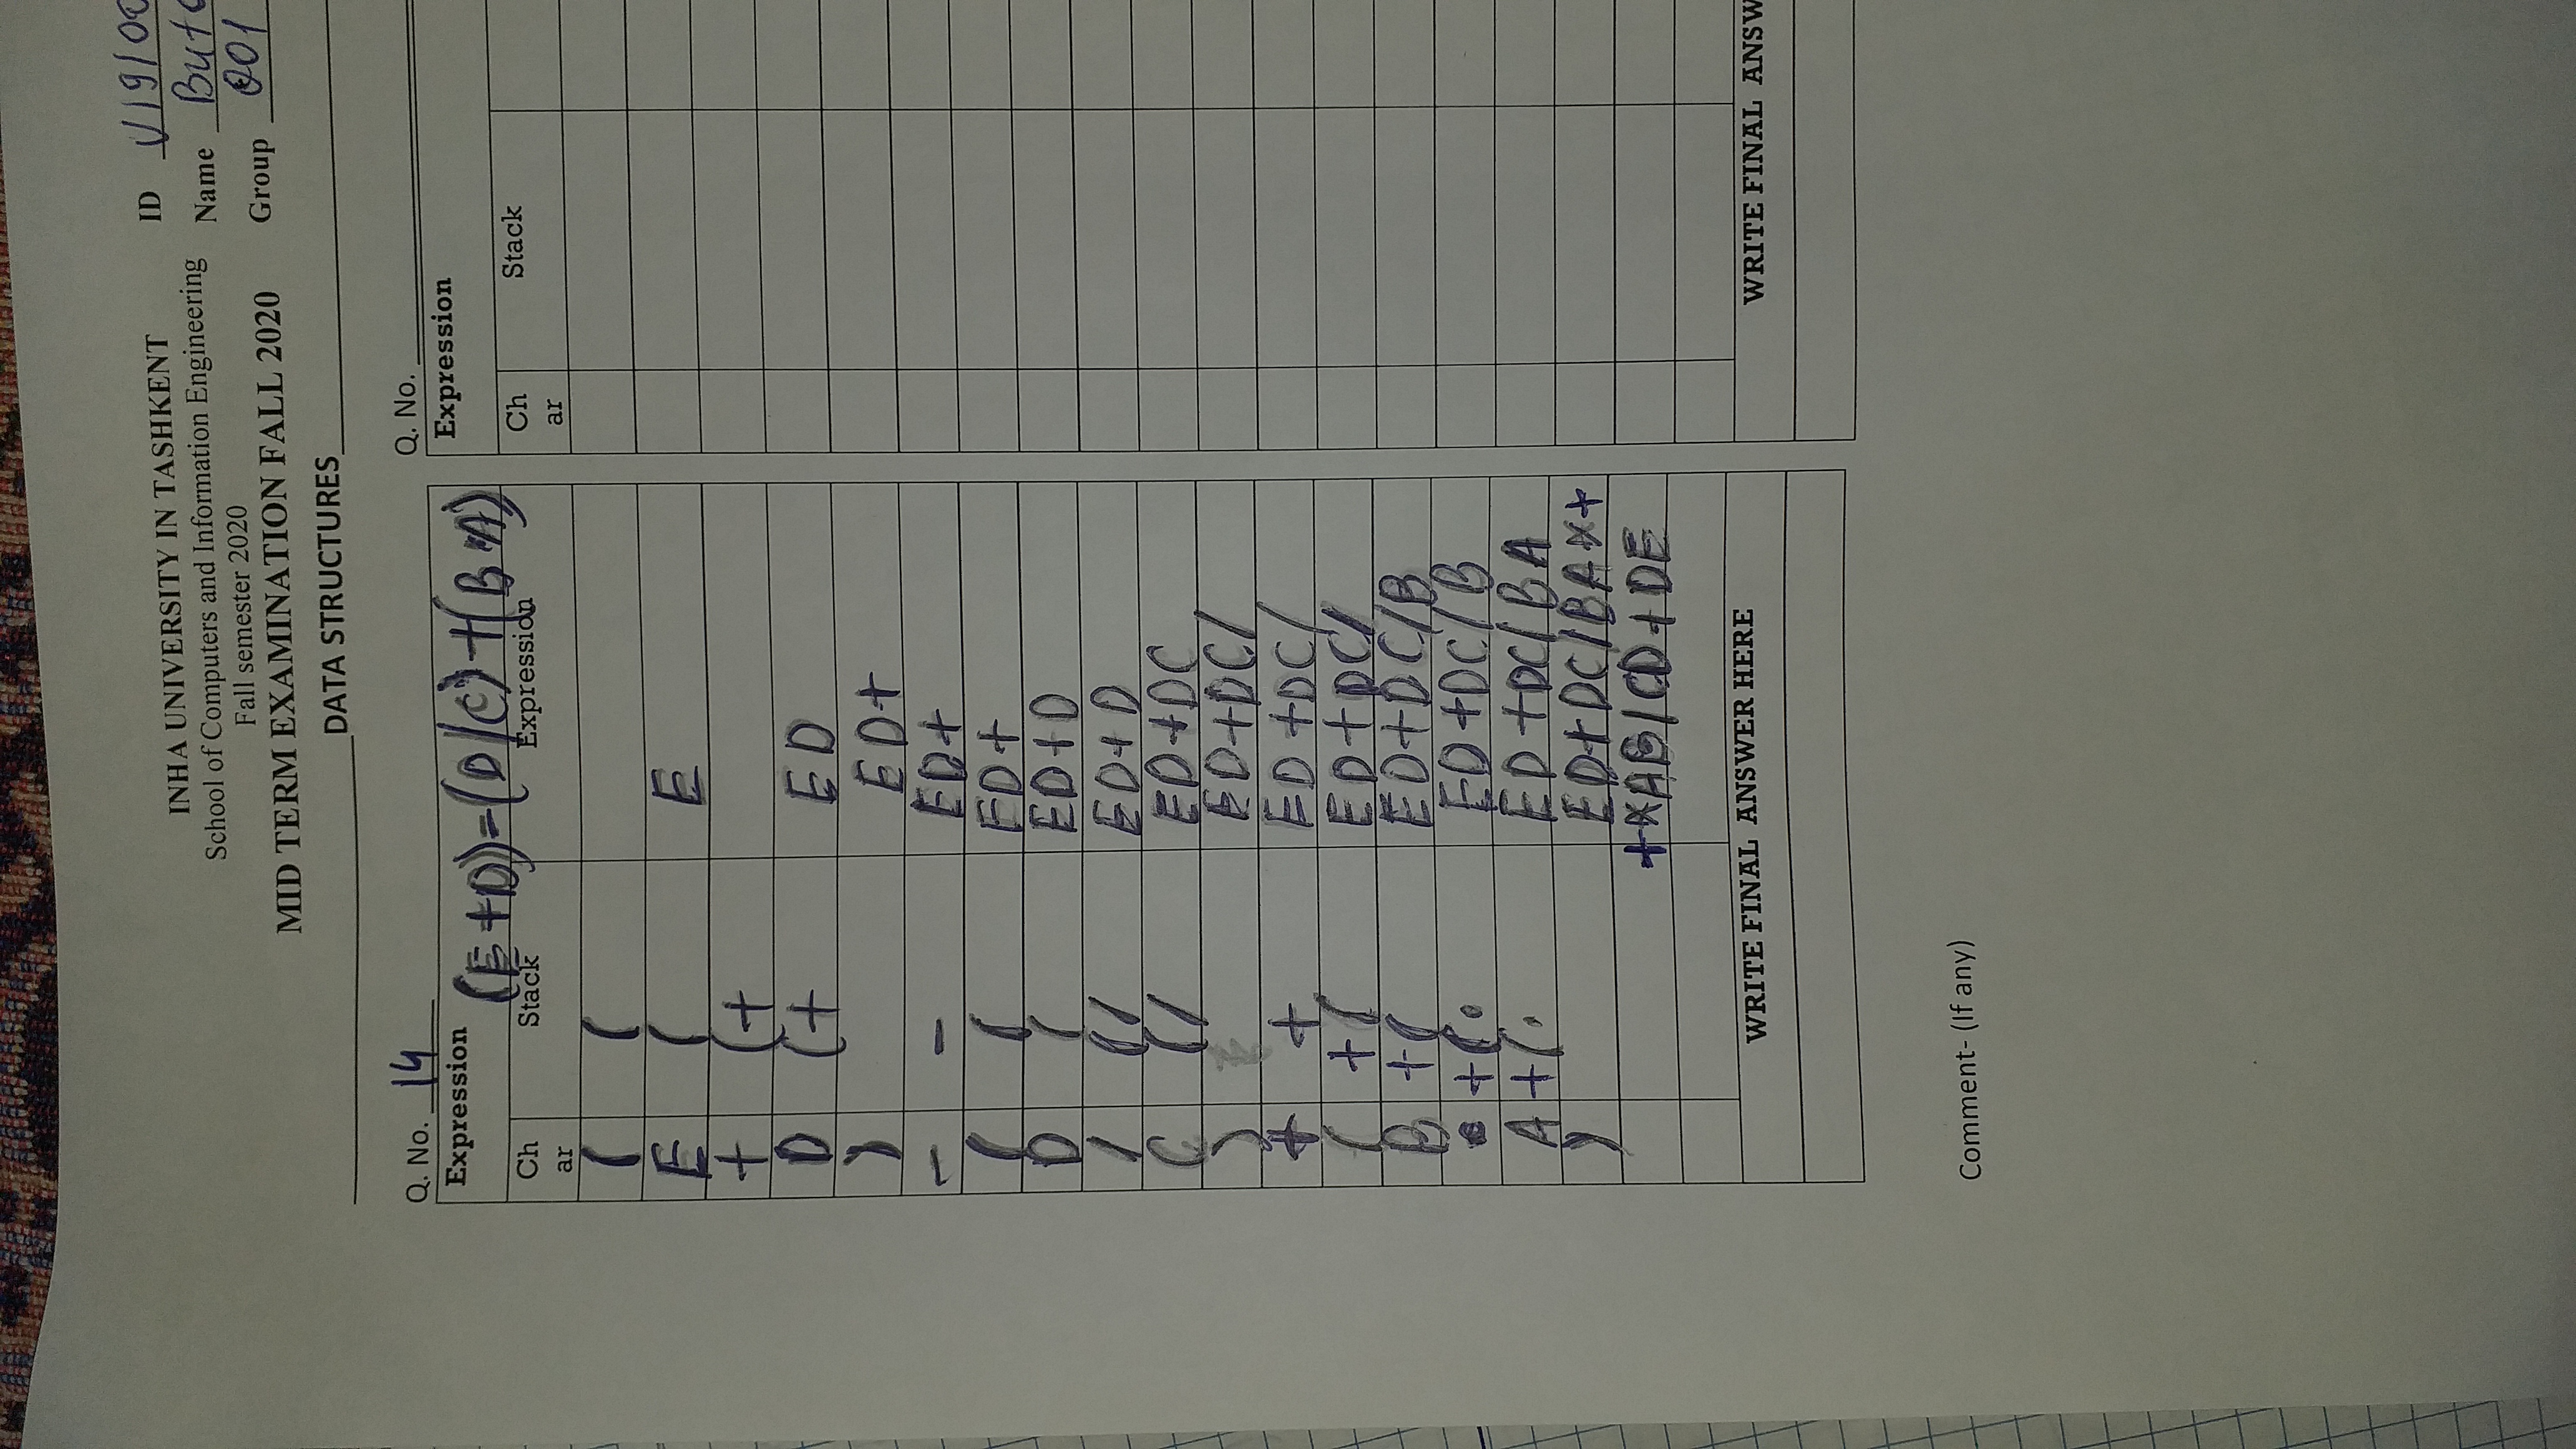 INHA UNIVERSITY IN TASHKENT
School of Computers and Information Engineering
Fall semester 2020
MID TERM EXAMINATION FALL 2020
DATA STRUCTURES
ID U19100
Name But
Group 001
Q. No. 14
Expression (E+D)=(D/C)+(B*A)
Ch ar Stack Expression
( (
E ( E
+ (+
D (+ ED
) ED+
- - ED+
( ( ED+
D ( ED+D
/ (/ ED+D
C (/ ED+DC
) ED+DC/
+ + ED+DC/
( +( ED+DC/
B +( ED+DC/B
• +(• ED+DC/B
A +(• ED+DC/BA
) ED+DC/BA*+
+*AB/CD+DE
WRITE FINAL ANSWER HERE
Q. No.
Expression
Ch ar Stack
WRITE FINAL ANSW
Comment- (If any)